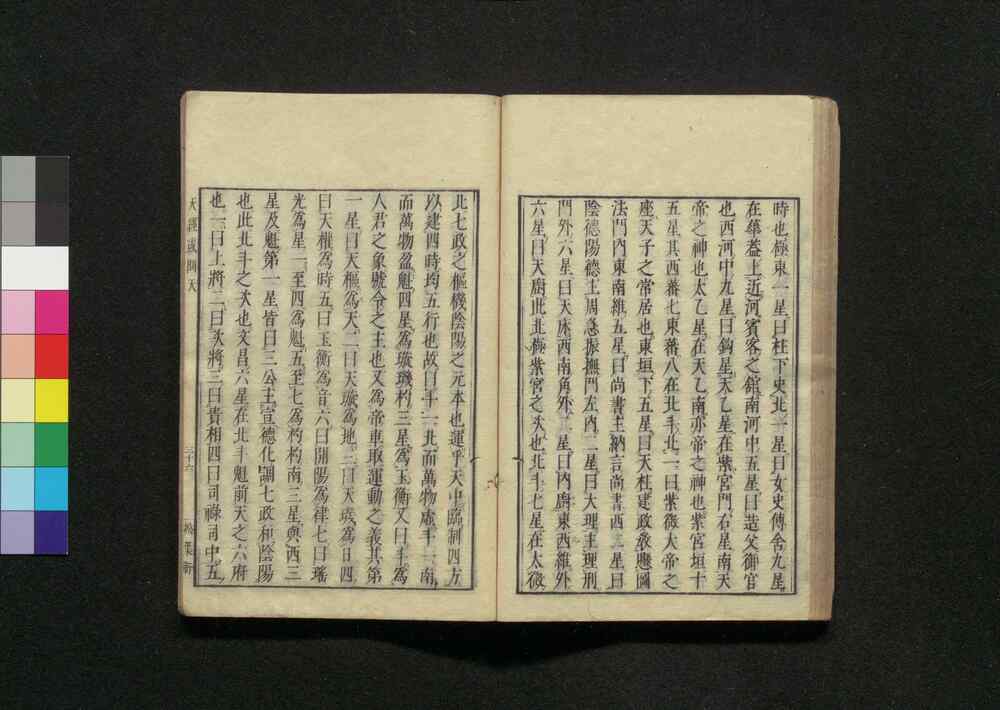 時也極東一星曰柱下史北一星曰女史傳舍九星
在華蓋上近河賓客之館南河中五星曰造父御官
也西河中九星曰鈎星天乙星在紫宮門右星南天
帝之神也太乙星在天乙南亦帝之神也紫宮垣十
五星其西蕃七東蕃八在北斗北一曰紫微大帝之
座天子之常居也東垣下五星曰天柱建政教懸圖
法門內東南維五星曰尚書主納言尚書西二星曰
陰德陽德主周急振撫門左內二星曰大理主理刑
門外六星曰天床西南角外二星曰內廚東西維外
六星曰天廚此北極紫宮之次也北斗七星在太微
北七政之樞機陰陽之元本也運乎天中臨制四方
以建四時均五行也故曰斗一北而萬物虛斗一南
而萬物盈魁四星為璇璣杓三星為玉衡又曰斗為
人君之象號令之主也又為帝車取運動之義其第
一星曰天樞為天二曰天璇為地三曰天璣為日四
曰天權為時五曰玉衡為音六曰開陽為律七曰瑤
光為星一至四為魁五至七為杓杓南三星與西三
星及魁第一星皆曰三公主宣德化調七政和陰陽
也此北斗之次也文昌六星在北斗魁前天之六府
也一曰上將二曰次將三曰貴相四曰司祿司中五
天經或問天
三十六